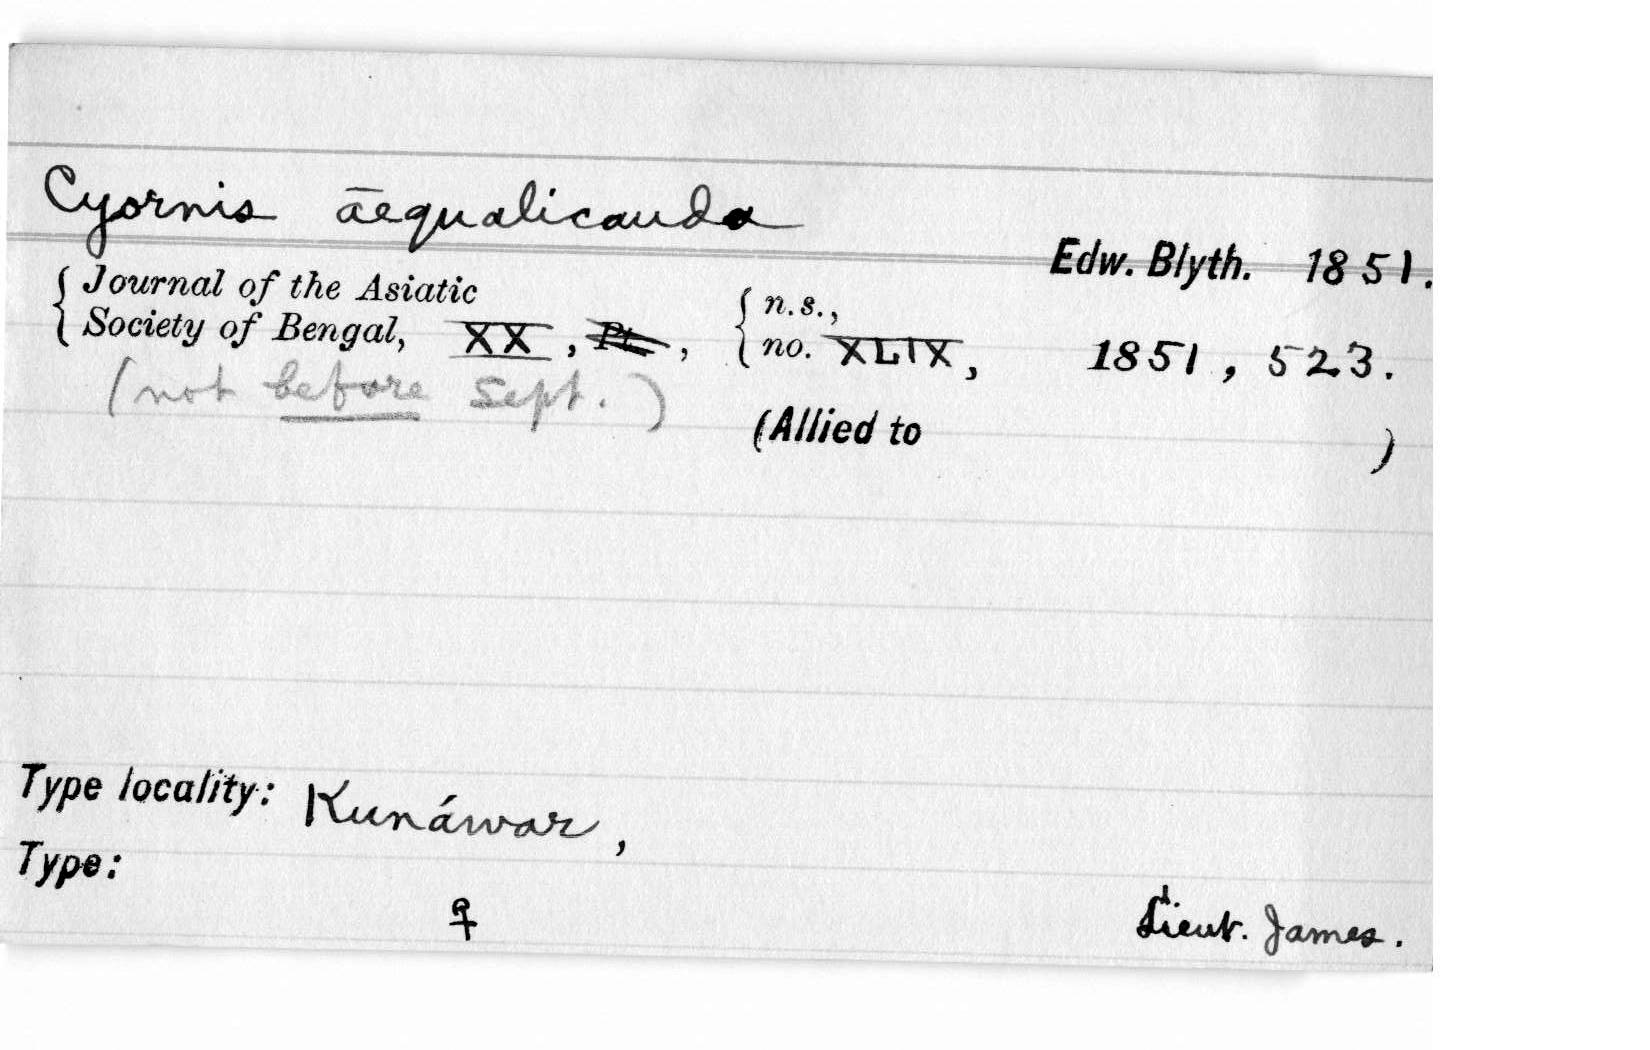 Cyornis āequalicauda
Edw. Blyth. 1851.
{ Journal of the Asiatic
Society of Bengal, XX, Pt., { n.s.,
no. XLIX, 1851, 523.
(not before Sept.)
(Allied to )
Type locality: Kunáwar,
Type:
♀ Lieut. James.